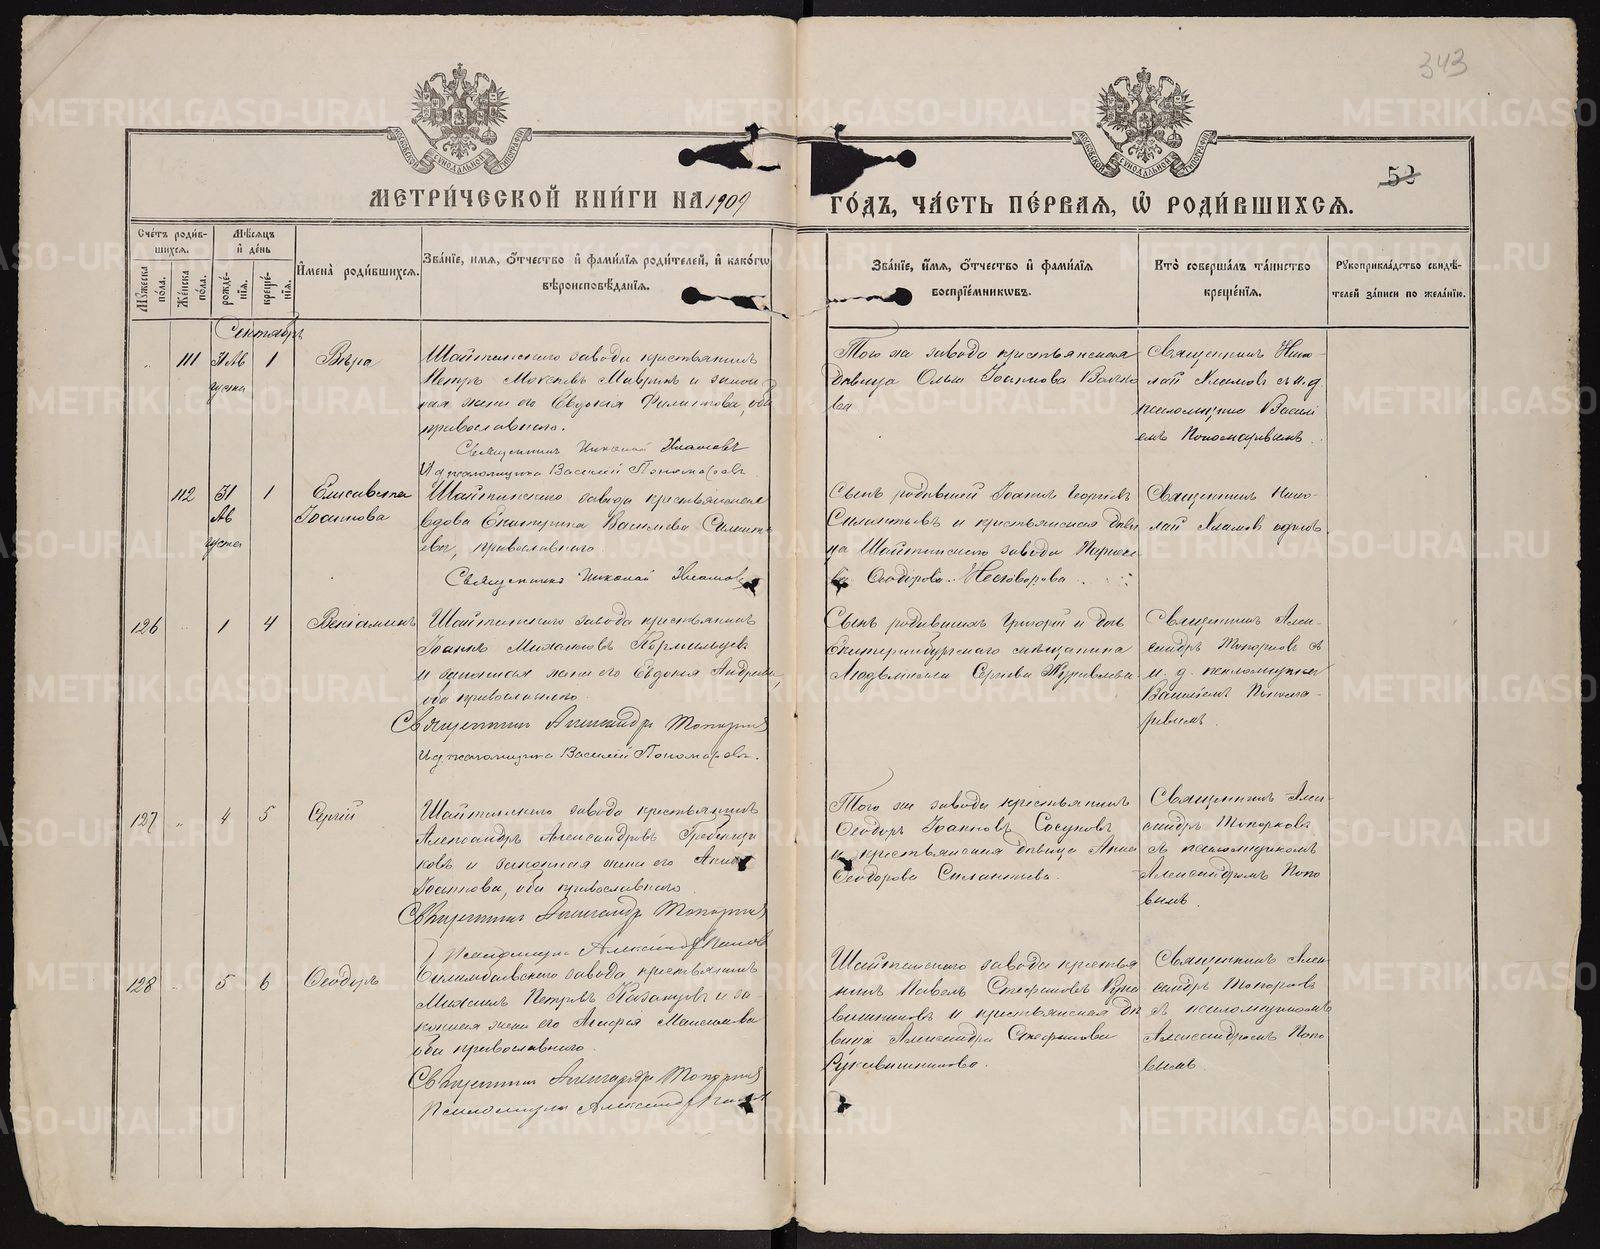 343
53
МЕТРИ́ЧЕСКОЙ КНИ́ГИ НА 1909 ГО́ДЪ, ЧА́СТЬ ПЕ́РВАЯ, Ѡ҆ РОДИ́ВШИХСЯ.
Сче́тъ роди́в-
шихся.
Мꙋ́жеска по́ла.
Же́нска по́ла.
Мѣ́сяцъ и҆ де́нь
рожде́-
нїя.
креще́-
нїя.
И҆мена̀ роди́вшихся.
Зва́нїе, и҆мя, ѻ҆́тчество и҆ фами́лїя роди́телей, и҆ како́гѡ
вѣроисповѣ́данїя.
Зва́нїе, и҆́мя, ѻ҆́тчество и҆ фами́лїя
воспрїе́мникѡвъ.
Кто̀ соверша́лъ та́инство
креще́нїя.
Рꙋкоприкла́дство свидѣ́-
телей за́писи по жела́нїю.
Сентябрь
111 31 Ав
густа 1 Вѣра
Шайтанского завода крестьянинъ
Петръ Мавринъ и закон
ная жена его Евдокія Филиппова, оба
православнаго.
Священникъ Николай
И д псаломщика Василий Пономаревъ
Того же завода крестьянская
дѣвица Ольга Іоаннова
Священникъ Нико-
лай съ и. д
псаломщика Васил
емъ Пономаревымъ.
112 31
Ав
густа 1 Елисавета
Іоаннова
Шайтанского завода крестьянская
вдова Екатерина Васильева Силанть
ева, православнаго.
Священникъ Николай
Сынъ родившей Іоаннъ Георгіевъ
Силантьевъ и крестьянская дѣви
ца Шайтанского завода Параске
ва Ѳеодорова
Священникъ Нико-
лай одинъ
126 1 4 Веніаминъ
Шайтанского завода крестьянинъ
Іоаннъ Михаиловъ Кормильцевъ
и законная жена его Евдокія Андреева,
оба православнаго.
Священникъ Александръ Топорковъ
И д псаломщика Василий Пономаревъ.
Сынъ родившихъ Григорій и дочь
Екатеринбургскаго мѣщанина
Людмила Сергіева Журавлева
Священникъ Алек-
сандръ Топорковъ съ
и. д. псаломщика
Василіемъ Понома-
ревымъ.
127 4 5 Сергій
Шайтанского завода крестьянинъ
Александръ Александровъ Гребенщи
ковъ и законная жена его Анна
Іоаннова, оба православнаго.
Священникъ Александръ Топорковъ
Псаломщикъ Александръ Поповъ
Того же завода крестьянинъ
Ѳеодоръ Іоанновъ Сосуновъ
и крестьянская дѣвица Анна
Ѳеодорова Силантьева.
Священникъ Алек-
сандръ Топорковъ
съ псаломщикомъ
Александромъ Попо
вымъ.
128 5 6 Ѳеодоръ
Билимбаевского завода крестьянинъ
Михаилъ Петровъ Казанцевъ и за-
конная жена его Максимова
оба православнаго.
Священникъ Александръ Топорковъ
Псаломщикъ Александръ Поповъ
Шайтанского завода крестья
нинъ Павелъ Стефановъ Рука
вишниковъ и крестьянская дѣ
вица Александра Стефанова
Рукавишникова.
Священникъ Алек-
сандръ Топорковъ
съ псаломщикомъ
Александромъ Попо
вымъ.
METRIKI.GASO-URAL.RU